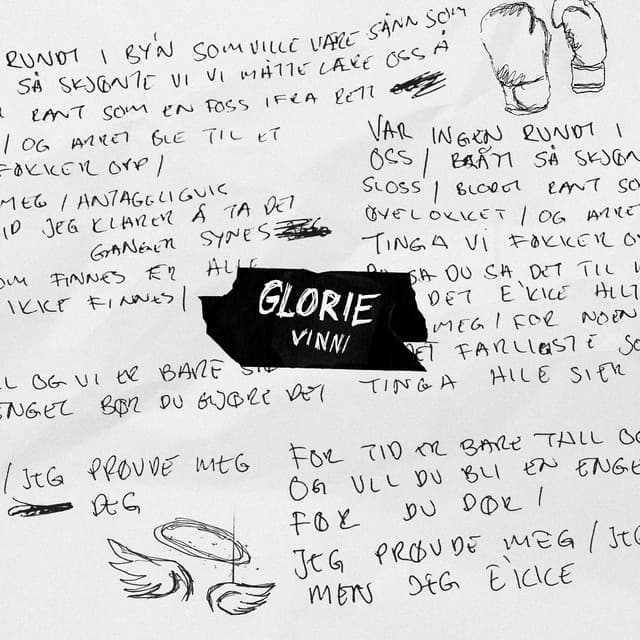 RUNDT I BY'N SOM VILLE VÆRE SÅNN SOM
SÅ SKJØNTE VI VI MÅTTE LÆRE OSS Å
RANT SOM EN FOSS IFRA RETT
/ OG ARRET BLE TIL ET
FØKKER OPP /
MEG / ANTAGELIGVIS
TID JEG KLARER Å TA DET
GANGER SYNES
SOM FINNES ER ALLE
IKKE FINNES /
OG VI ER BARE
ENGEL BØR DU GJØRE DET
/ JEG PRØVDE MEG
DEG
VAR INGEN RUNDT I
OSS / SÅ SKJØN
SLOSS / BLODET RANT SO
ØYELOKKET / OG ARRE
TINGA VI FØKKER O
SA DU SA DET TIL
DET E'KKE ALLT
MEG / FOR NOEN
DET FARLIGSTE SO
TINGA ALLE SIER
GLORIE
VINNI
FOR TID ER BARE TALL OG
OG VIL DU BLI EN ENGE
FØR DU DØR /
JEG PRØVDE MEG / JEG
MEN JEG E'KKE